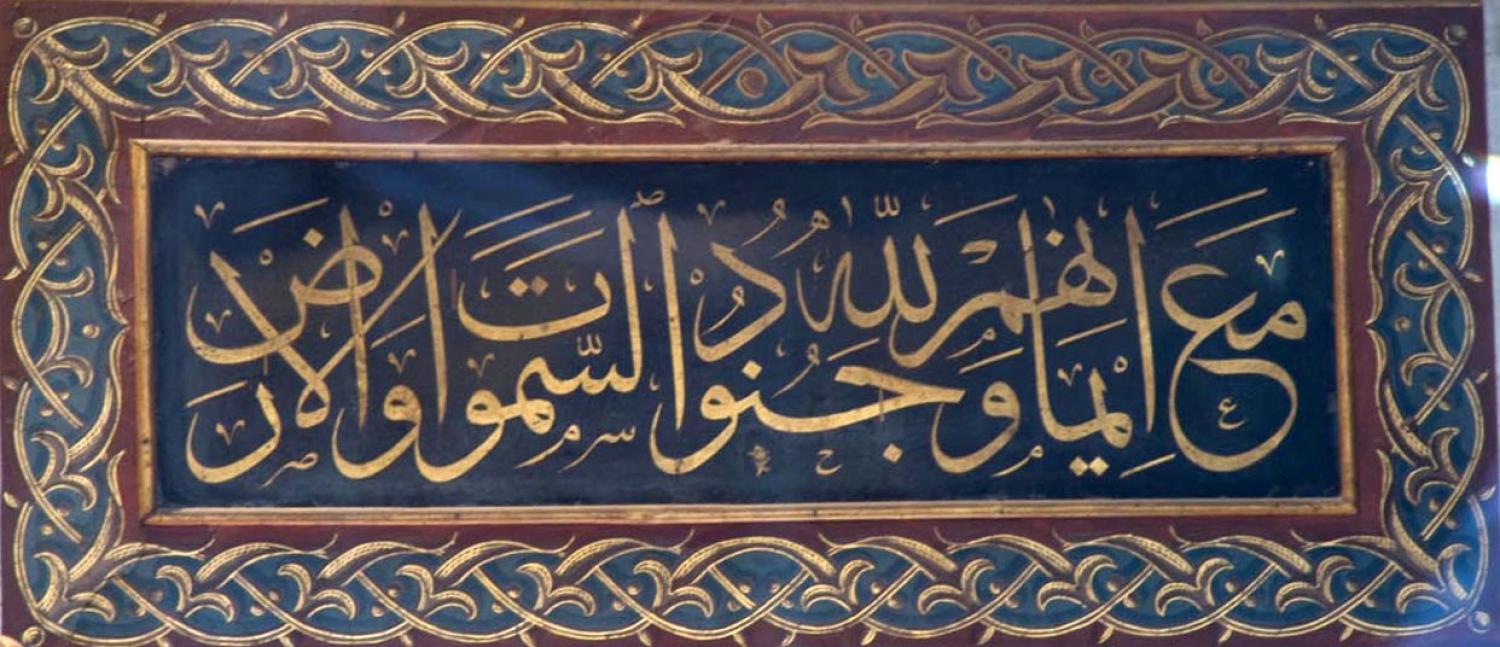 مَعَ ايمانهمْ وَلله جَنُودُ السّموَاتِ وَالارَضِ